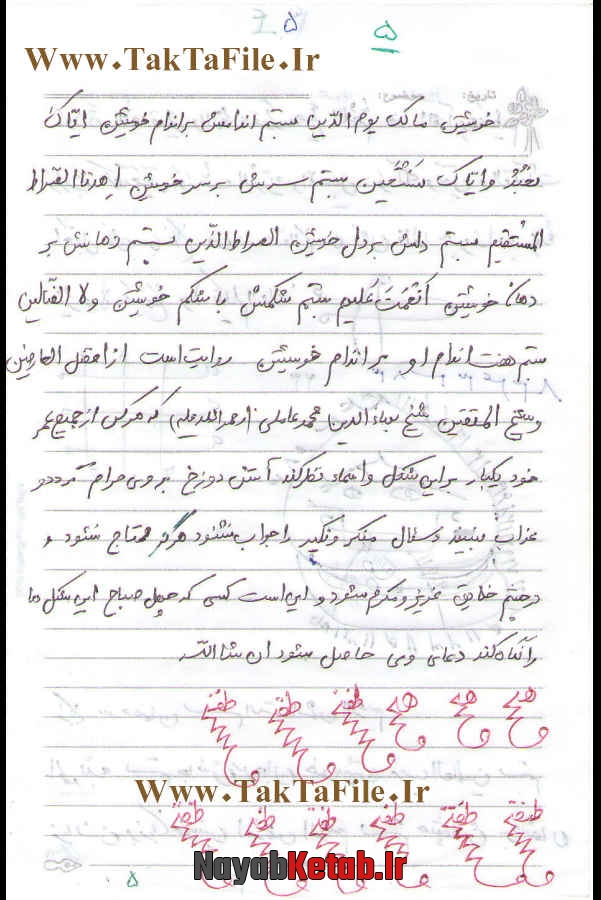 ۵ ۵
Www.TakTaFile.Ir
تاریخ: موضوع:
خویشتن مالک یوم الدین بستم اندامش بر اندام خویشتن ایاک
نعبد و ایاک نستعین بستم سرش بر سر خویش اهدنا الصراط
المستقیم بستم دلش بر دل خویشتن الصراط الذین بستم دهانش بر
دهان خویشتن انعمت علیهم بستم شکمش با شکم خویشتن ولا الضالین
بستم هفت اندام او بر اندام خویشتن روایت است از افضل العارفین
و شیخ المتقین شیخ بهاء الدین محمد عاملی (رحمه الله علیه) که هرکس از جمیع عمر
خود یکبار بر این شکل و اسماء نظر کند آتش دوزخ بر وی حرام گردد و
عذاب نبیند و سئوال منکر و نکیر را جواب شنود هرگز محتاج نشود و
در چشم خلایق عزیز و مکرم شود و این است کسی که چهل صباح این شکل ها
را نگاه کند دعای وی حاصل شود ان شاالله
Www.TakTaFile.Ir
NayabKetab.Ir
۵